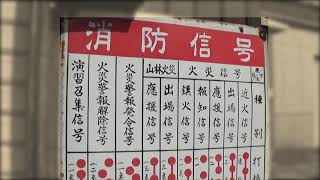 消防信号
種別
火災信号
近火信号
出場信号
応援信号
報知信号
鎮火信号
山林火災
出場信号
応援信号
火災警報発令信号
火災警報解除信号
演習召集信号
打